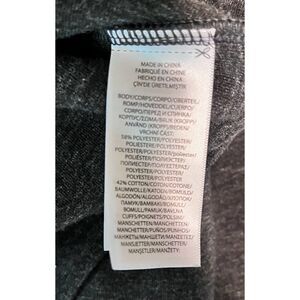 MADE IN CHINA
FABRIQUÉ EN CHINE
HECHO EN CHINA
ÇİN'DE ÜRETİLMİŞTİR
BODY/CORPS/CORPO/OBERTEIL/
ROMP/HOVEDDEL/CUERPO/
CORPO/ПЕРЕД И СПИНКА/
КОРПУС/
VRCHNÍ ČÁST:
58% POLYESTER/POLYESTER/
POLIESTERE/POLYESTER/
POLYESTER/POLYESTER/polyester/
POLIÉSTER/POLIÉSTER/
ПОЛИЭСТЕР/ПОЛИЕСТЕР/
POLYESTER/POLYESTER/
POLYESTER
42% COTTON/COTON/COTONE/
BAUMWOLLE/KATOEN/BOMULD/
ALGODÓN/ALGODÃO/ХЛОПОК/
ПАМУК/BAMBAKI/BOMULL/
BOMULL/PAMUK/BAVLNA
CUFFS/POIGNETS/POLSINI/
MANSCHETTEN/MANCHETTEN/
MANCHETTER/PUÑOS/PUNHOS/
МАНЖЕТЫ/МАНШЕТИ/
MANSJETTER/MANSCHETTER/
MANŞETLER/MANŽETY: